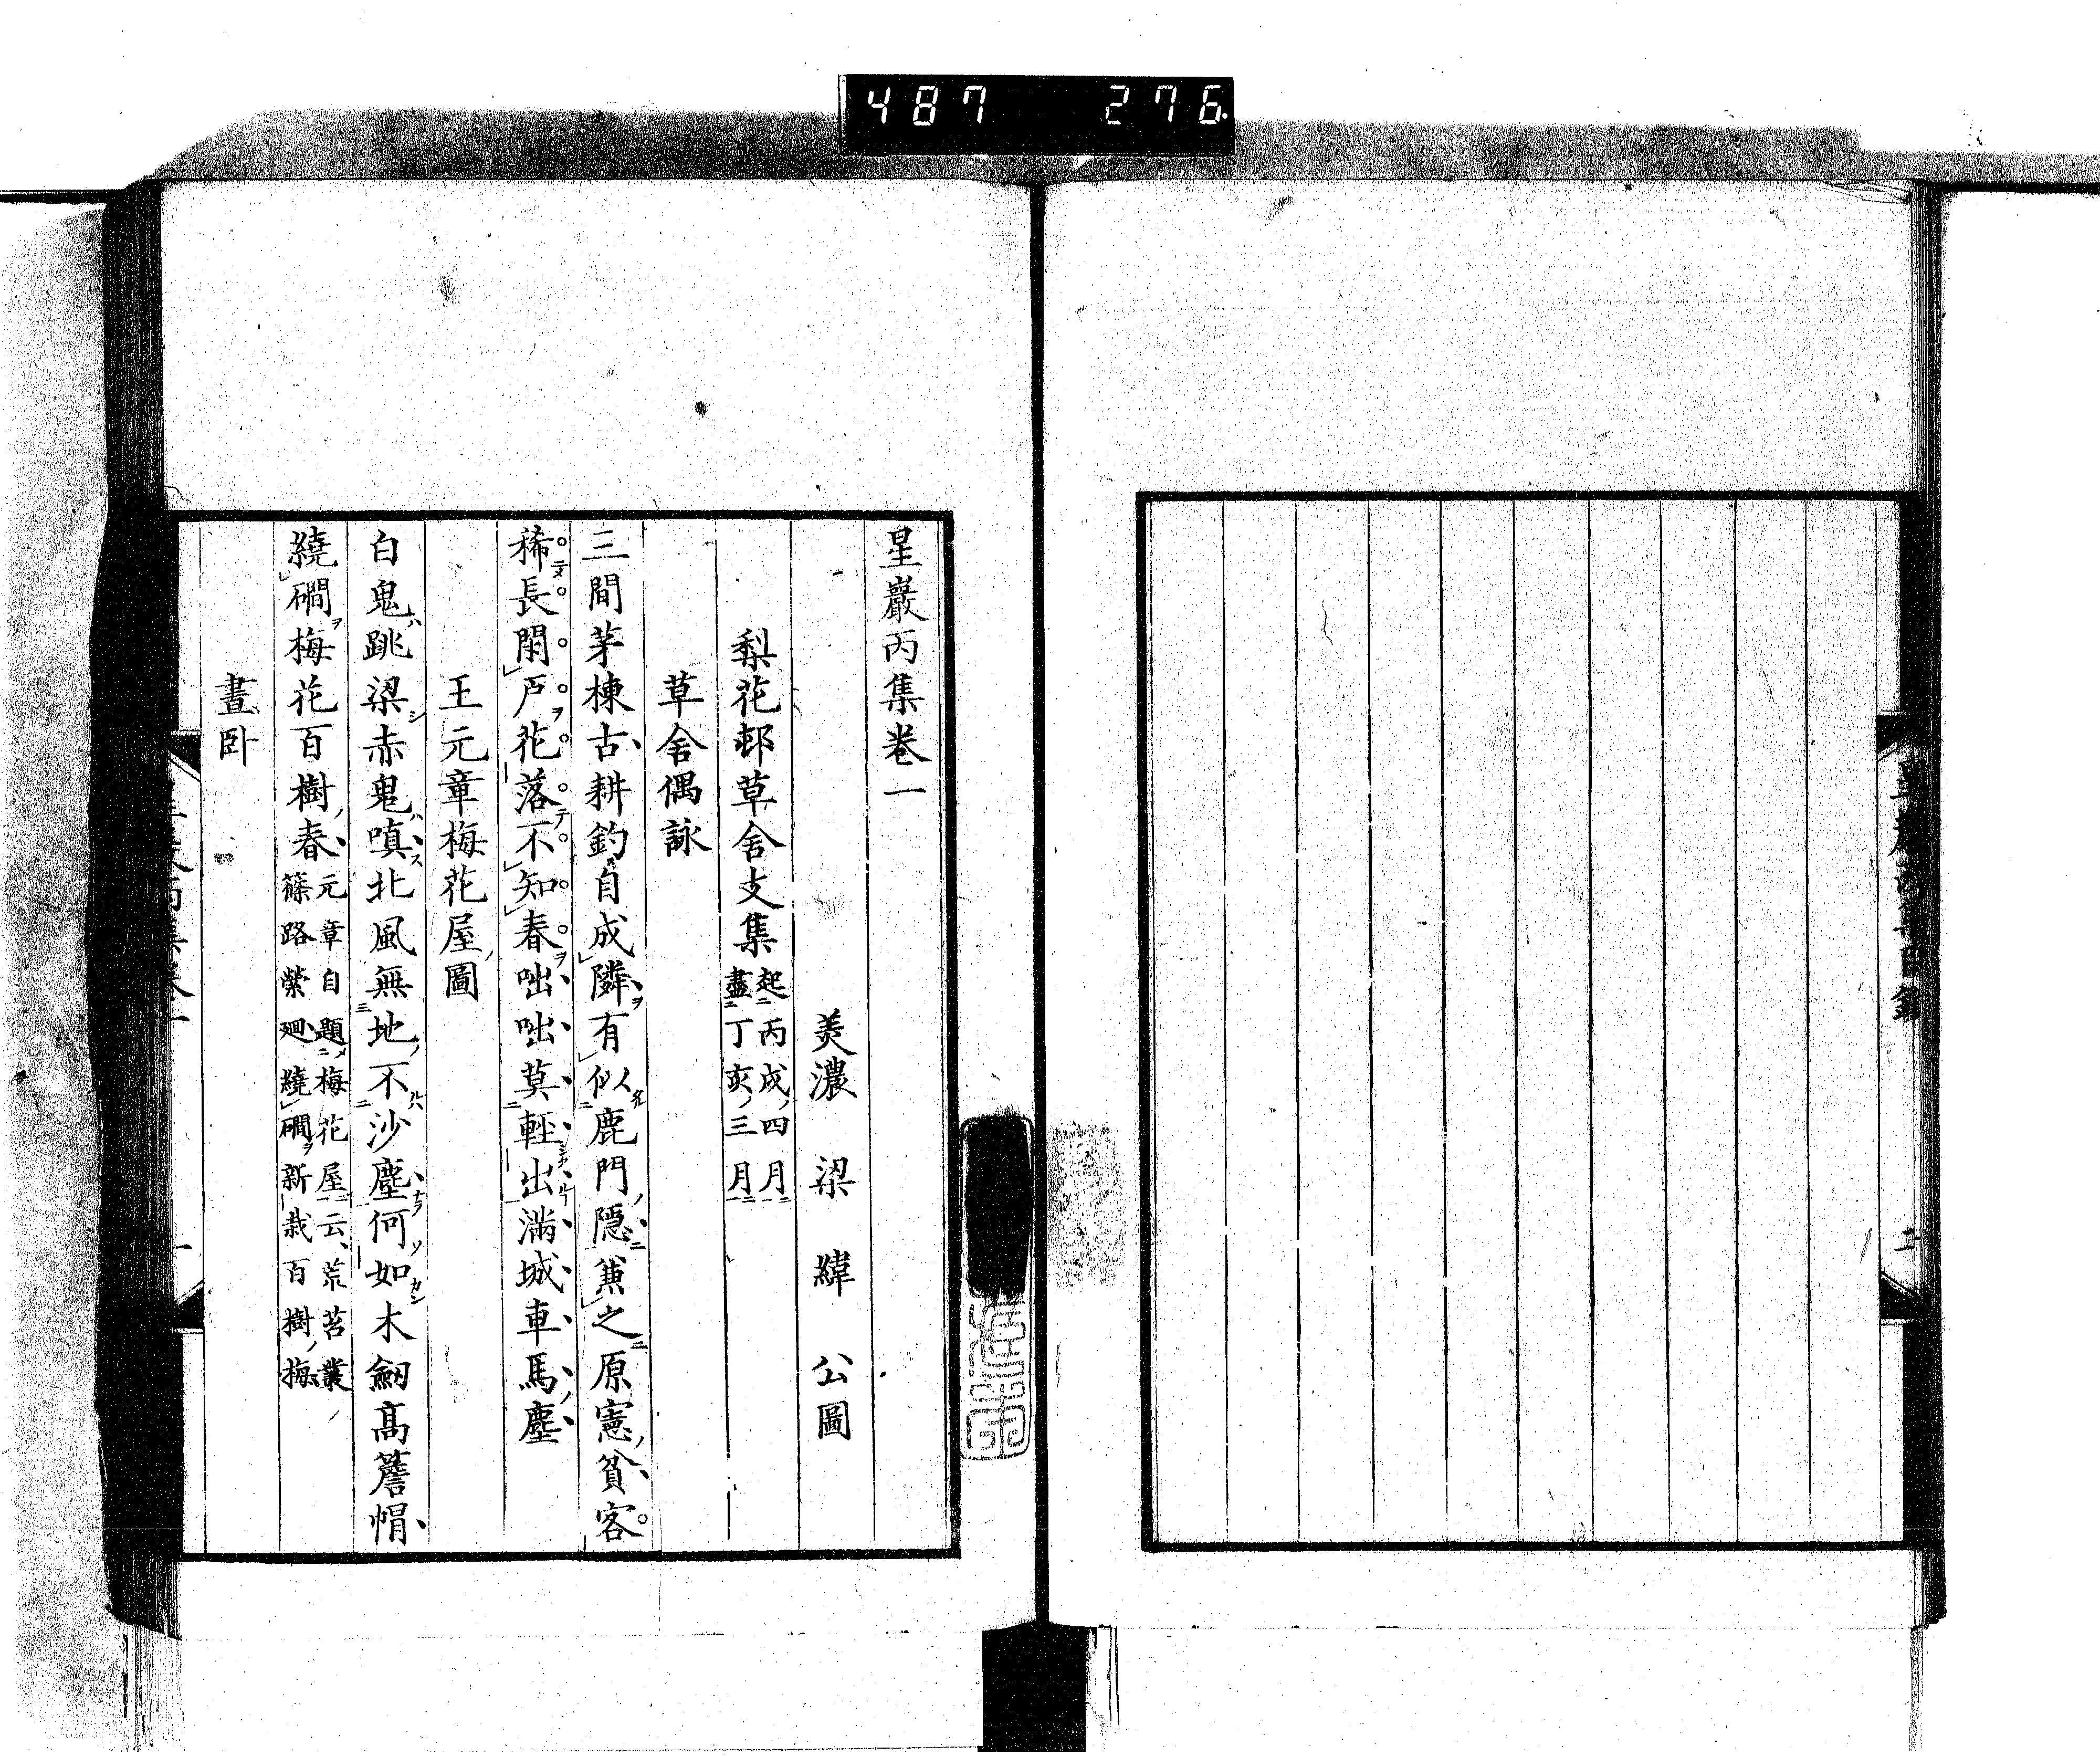 487 276
星巖丙集卷一
美濃 梁 緯 公圖
梨花邨草舍支集 起丙戌四月 盡丁亥三月
草舍偶詠
三間茅棟古耕釣自成隣有似鹿門隱兼之原憲貧客
稀長閑戸花落不知春咄咄莫輕出滿城車馬塵
王元章梅花屋圖
白鬼跳梁赤鬼嗔北風無地不沙塵何如木劒高簷帽
繞磵梅花百樹春 元章自題梅花屋云荒苔叢
篠路縈廻繞磵新栽百樹梅
晝臥